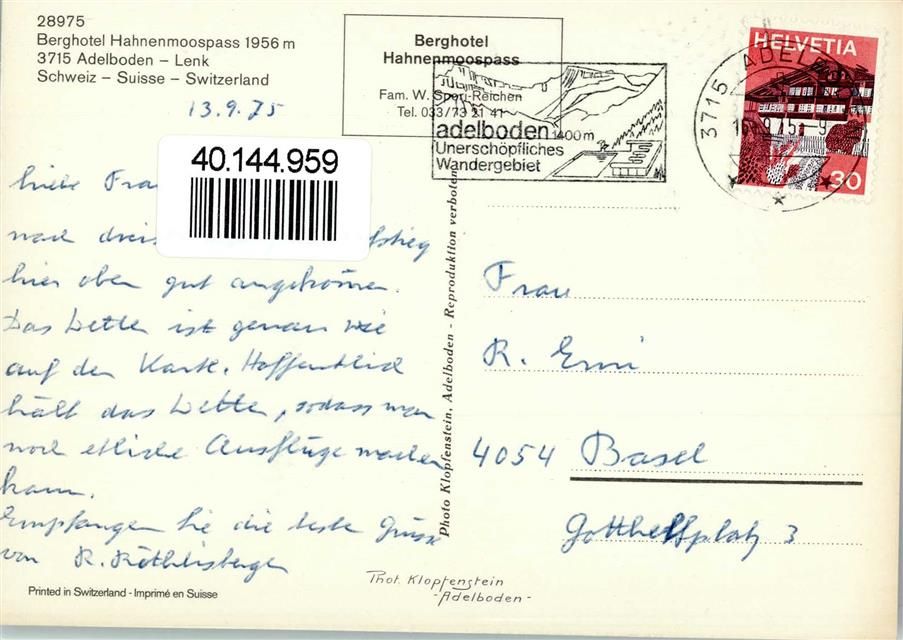 28975
Berghotel Hahnenmoospass 1956 m
3715 Adelboden – Lenk
Schweiz – Suisse – Switzerland
13.9.75
Berghotel
Hahnenmoospass
Fam. W. Spori-Reichen
Tel. 033/73 21 41
adelboden 1400m
Unerschöpfliches
Wandergebiet
3715 ADELBODEN
HELVETIA
30
40.144.959
Liebe Frau
nach dreis
hier oben gut angekommen.
Das Wetter ist genau wie
auf der Karte. Hoffentlich
hält das Wetter, sodass man
noch etliche Ausflüge machen
kann.
Empfangen Sie die besten Grüsse
von R. Röthlisberger
Photo Klopfenstein, Adelboden - Reproduktion verboten
Frau
R. Erni
4054 Basel
Gotthelfplatz 3
Phot. Klopfenstein
- Adelboden -
Printed in Switzerland - Imprimé en Suisse